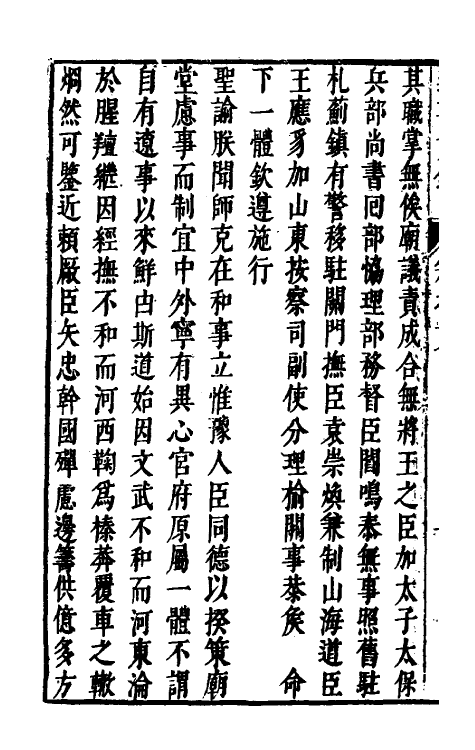 其職掌無俟廟議責成合無將王之臣加太子太保
兵部尚書囘部恊理部務督臣閻鳴泰無事照舊駐
札薊鎮有警移駐關門撫臣袁崇煥兼制山海道臣
王應豸加山東按察司副使分理榆關事恭矦 命
下一體欽遵施行
聖諭朕聞師克在和事立惟豫人臣同德以揆策廟
堂慮事而制宜中外寧有異心官府原屬一體不謂
自有遼事以來鮮由斯道始因文武不和而河東淪
於腥羶繼因經撫不和而河西鞠爲榛莾覆車之轍
烱然可鑒近頼厰臣矢忠幹國殫慮邊籌供億多方